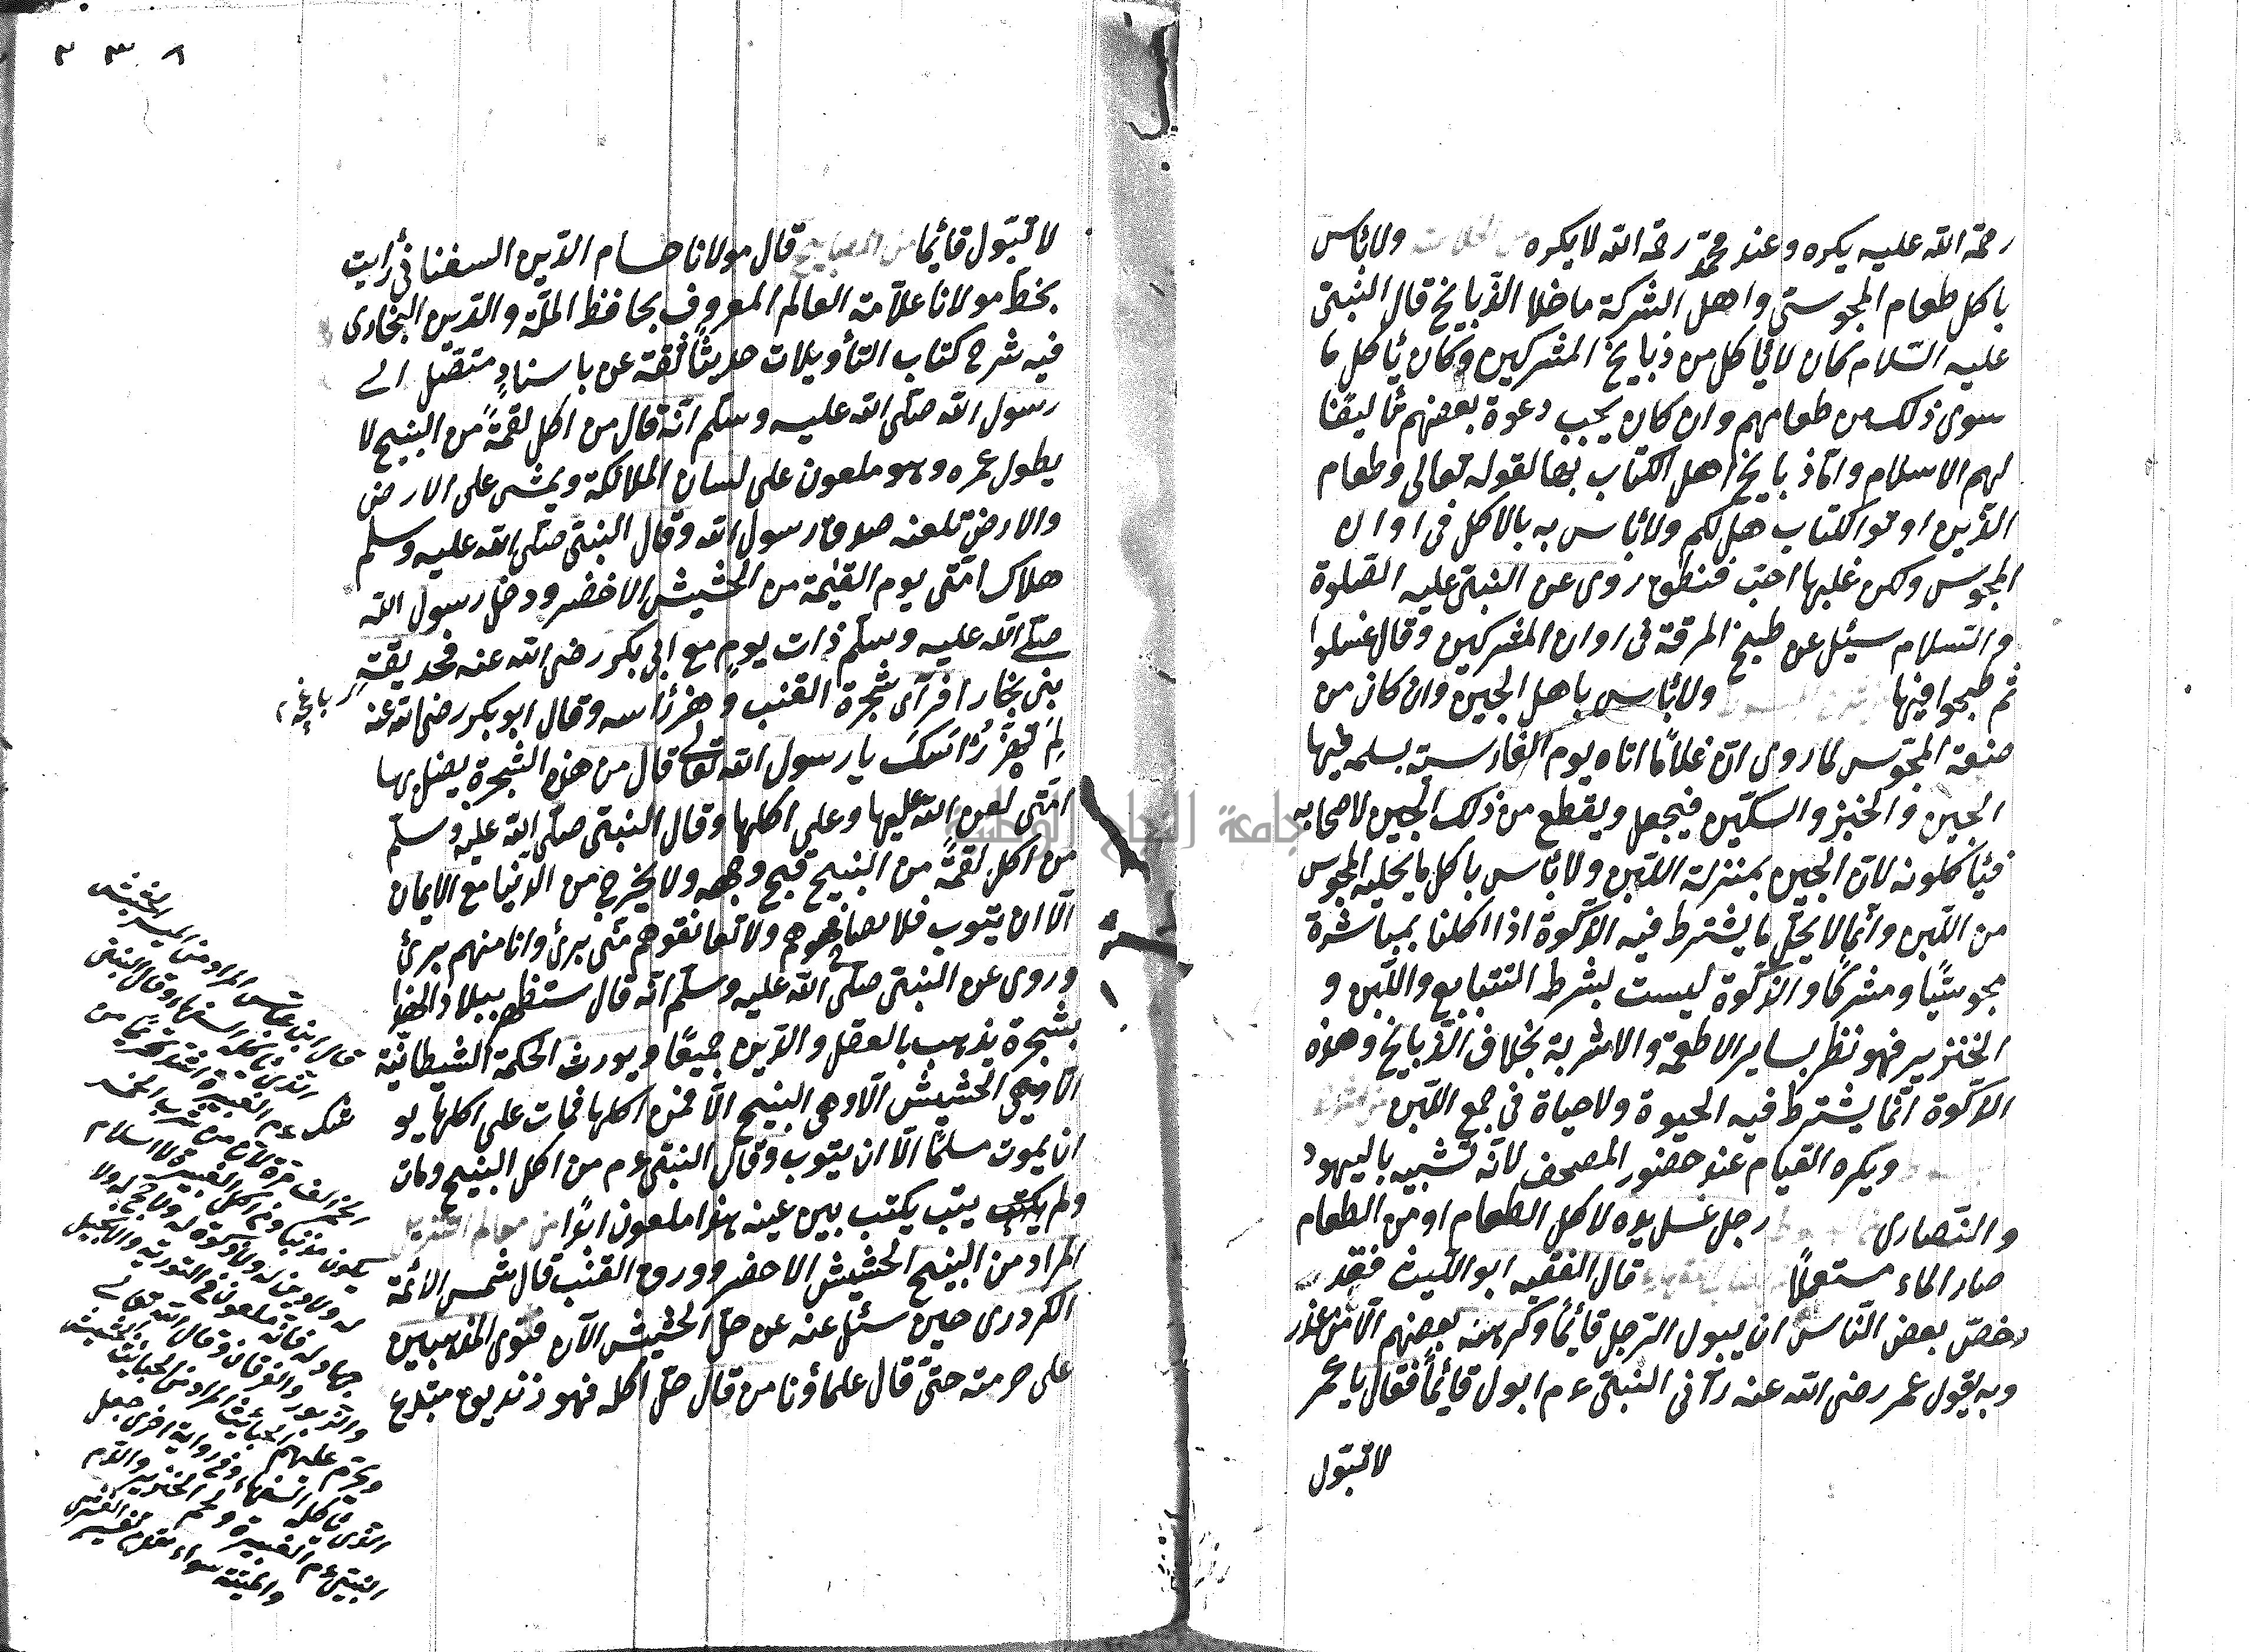 رحمة الله عليه يكره وعند محمد رحمة الله لا يكره ولا بأس
باكل طعام المجوسي واهل الشركة ما خلا الذبايح قال النبي
عليه السلام كان لا يأكل من ذبايح المشركين وكان يأكل ما
سوى ذلك من طعامهم وان كان يجيب دعوة بعضهم تأليفا
لهم الاسلام واما ذبايح اهل الكتاب بها لقوله تعالى وطعام
الذين اوتوا الكتاب حل لكم ولا بأس به بالاكل في اوان
المجوس ولكن غلبها احب روى عن النبي عليه الصلوة
والسلام سئل عن طبيخ المرقة في اوان المشركين وقال غسلوا
ثم طبحوا فيها ولا بأس باهل الجبن وان كان من
صنعة المجوس لما روى ان غلاما اتاه يوم القادسية بسلة فيها
الجبن والخبز والسكين فيجعل ويقطع من ذلك الجبن لاصحابه
فيأكلونه لان الجبن بمنزلة اللبن ولا بأس باكل ما يحلبه المجوس
من اللبن وانما لا يحل ما يشترط فيه الذكوة اذا اكلنا بمباشرة
مجوسيا ومشركا والذكوة ليست بشرط واللبن و
الخنزير فهو نظر بساير الاطعمة والاشربة بخلاف الذبايح وهذه
الذكوة انما يشترط فيه الحيوة ولا حياة في جمع اللبن
ويكره القيام عند حضور المصحف لانه تشبيه باليهود
والنصارى رجل غسل يده لاكل الطعام او من الطعام
صار الماء مستعملا قال الفقيه ابو الليث فقد
رخص بعض الناس ان يبول الرجل قائما وكرهه بعضهم الا من عذر
وبه يقول عمر رضى الله عنه رآني النبي ءم ابول قائما فقال يا عمر
لا تبول
٣٣٨
لا تبول قائما من المصابيح قال مولانا حسام الدين السغناقي رأيت
بخط مولانا علامة العالم المعروف بحافظ الملة والدين البخارى
فيه شرح كتاب التأويلات حديثا باسناد متصل الى
رسول الله صلى الله عليه وسلم انه قال من اكل لقمة من البنيج لا
يطول عمره وهو ملعون على لسان الملائكة ويمشى على الارض
والارض تلعنه صدق رسول الله وقال النبي صلى الله عليه وسلم
هلاك امتى يوم القيمة من الحشيش الاخضر ودخل رسول الله
صلى الله عليه وسلم ذات يوم مع ابي بكر رضى الله عنه فحديقة
بنى نجار فرأى شجرة القنب وهز رأسه وقال ابو بكر رضى الله عنه
لم تهز رأسك يا رسول الله تعالى قال من هذه الشجرة يضل بها
امتى لعن الله عليها وعلى اكلها وقال النبي صلى الله عليه وسلم
من اكل لقمة من البنيج قبح وجهه ولا يخرج من الدنيا مع الايمان
الا ان يتوب فلا تصافحوهم ولا تعانقوهم منى برئ وانا منهم برئ
وروى عن النبي صلى الله عليه وسلم انه قال ستظهر ببلاد
بشجرة يذهب بالعقل والدين جميعا ويورث الحكمة الشيطانية
الا وهي الحشيش الا وهي البنيج الا فمن اكلها فمات على اكلها
ان يموت مسلما الا ان يتوب وقال النبي ءم من اكل البنيج ومات
ولم يتب يكتب بين عينه هذا ملعون ابدا من معالم التنزيل
المراد من البنيج الحشيش الاخضر وورق القنب قال شمس الائمة
الكردرى حين سئل عنه عن حل الحشيش الآن فتوى المذهبين
على حرمته حتى قال علماؤنا من قال حل اكله فهو زنديق مبتدع
باغچه
قال ابن عباس المراد من الميسر الحشيش
الذى تأكله السفهاء وقال النبي
ءم الغبيرة اشد تحريما من
الخمر لان من شرب الخمر
يكون مذنبا ومن اكل الغبيرة لا اسلام
له ولا دين له ولا زكوة له ولا حج له ولا
جهاد له فانه ملعون في التورية والانجيل
والزبور والفرقان وقال الله تعالى
ويحرم عليهم الخبائث المراد من الخبائث الحشيش
الذى تأكله السفهاء وفي رواية اخرى جعل
النبي ءم الغبيرة ولحم الخنزير والدم
والميتة سواء